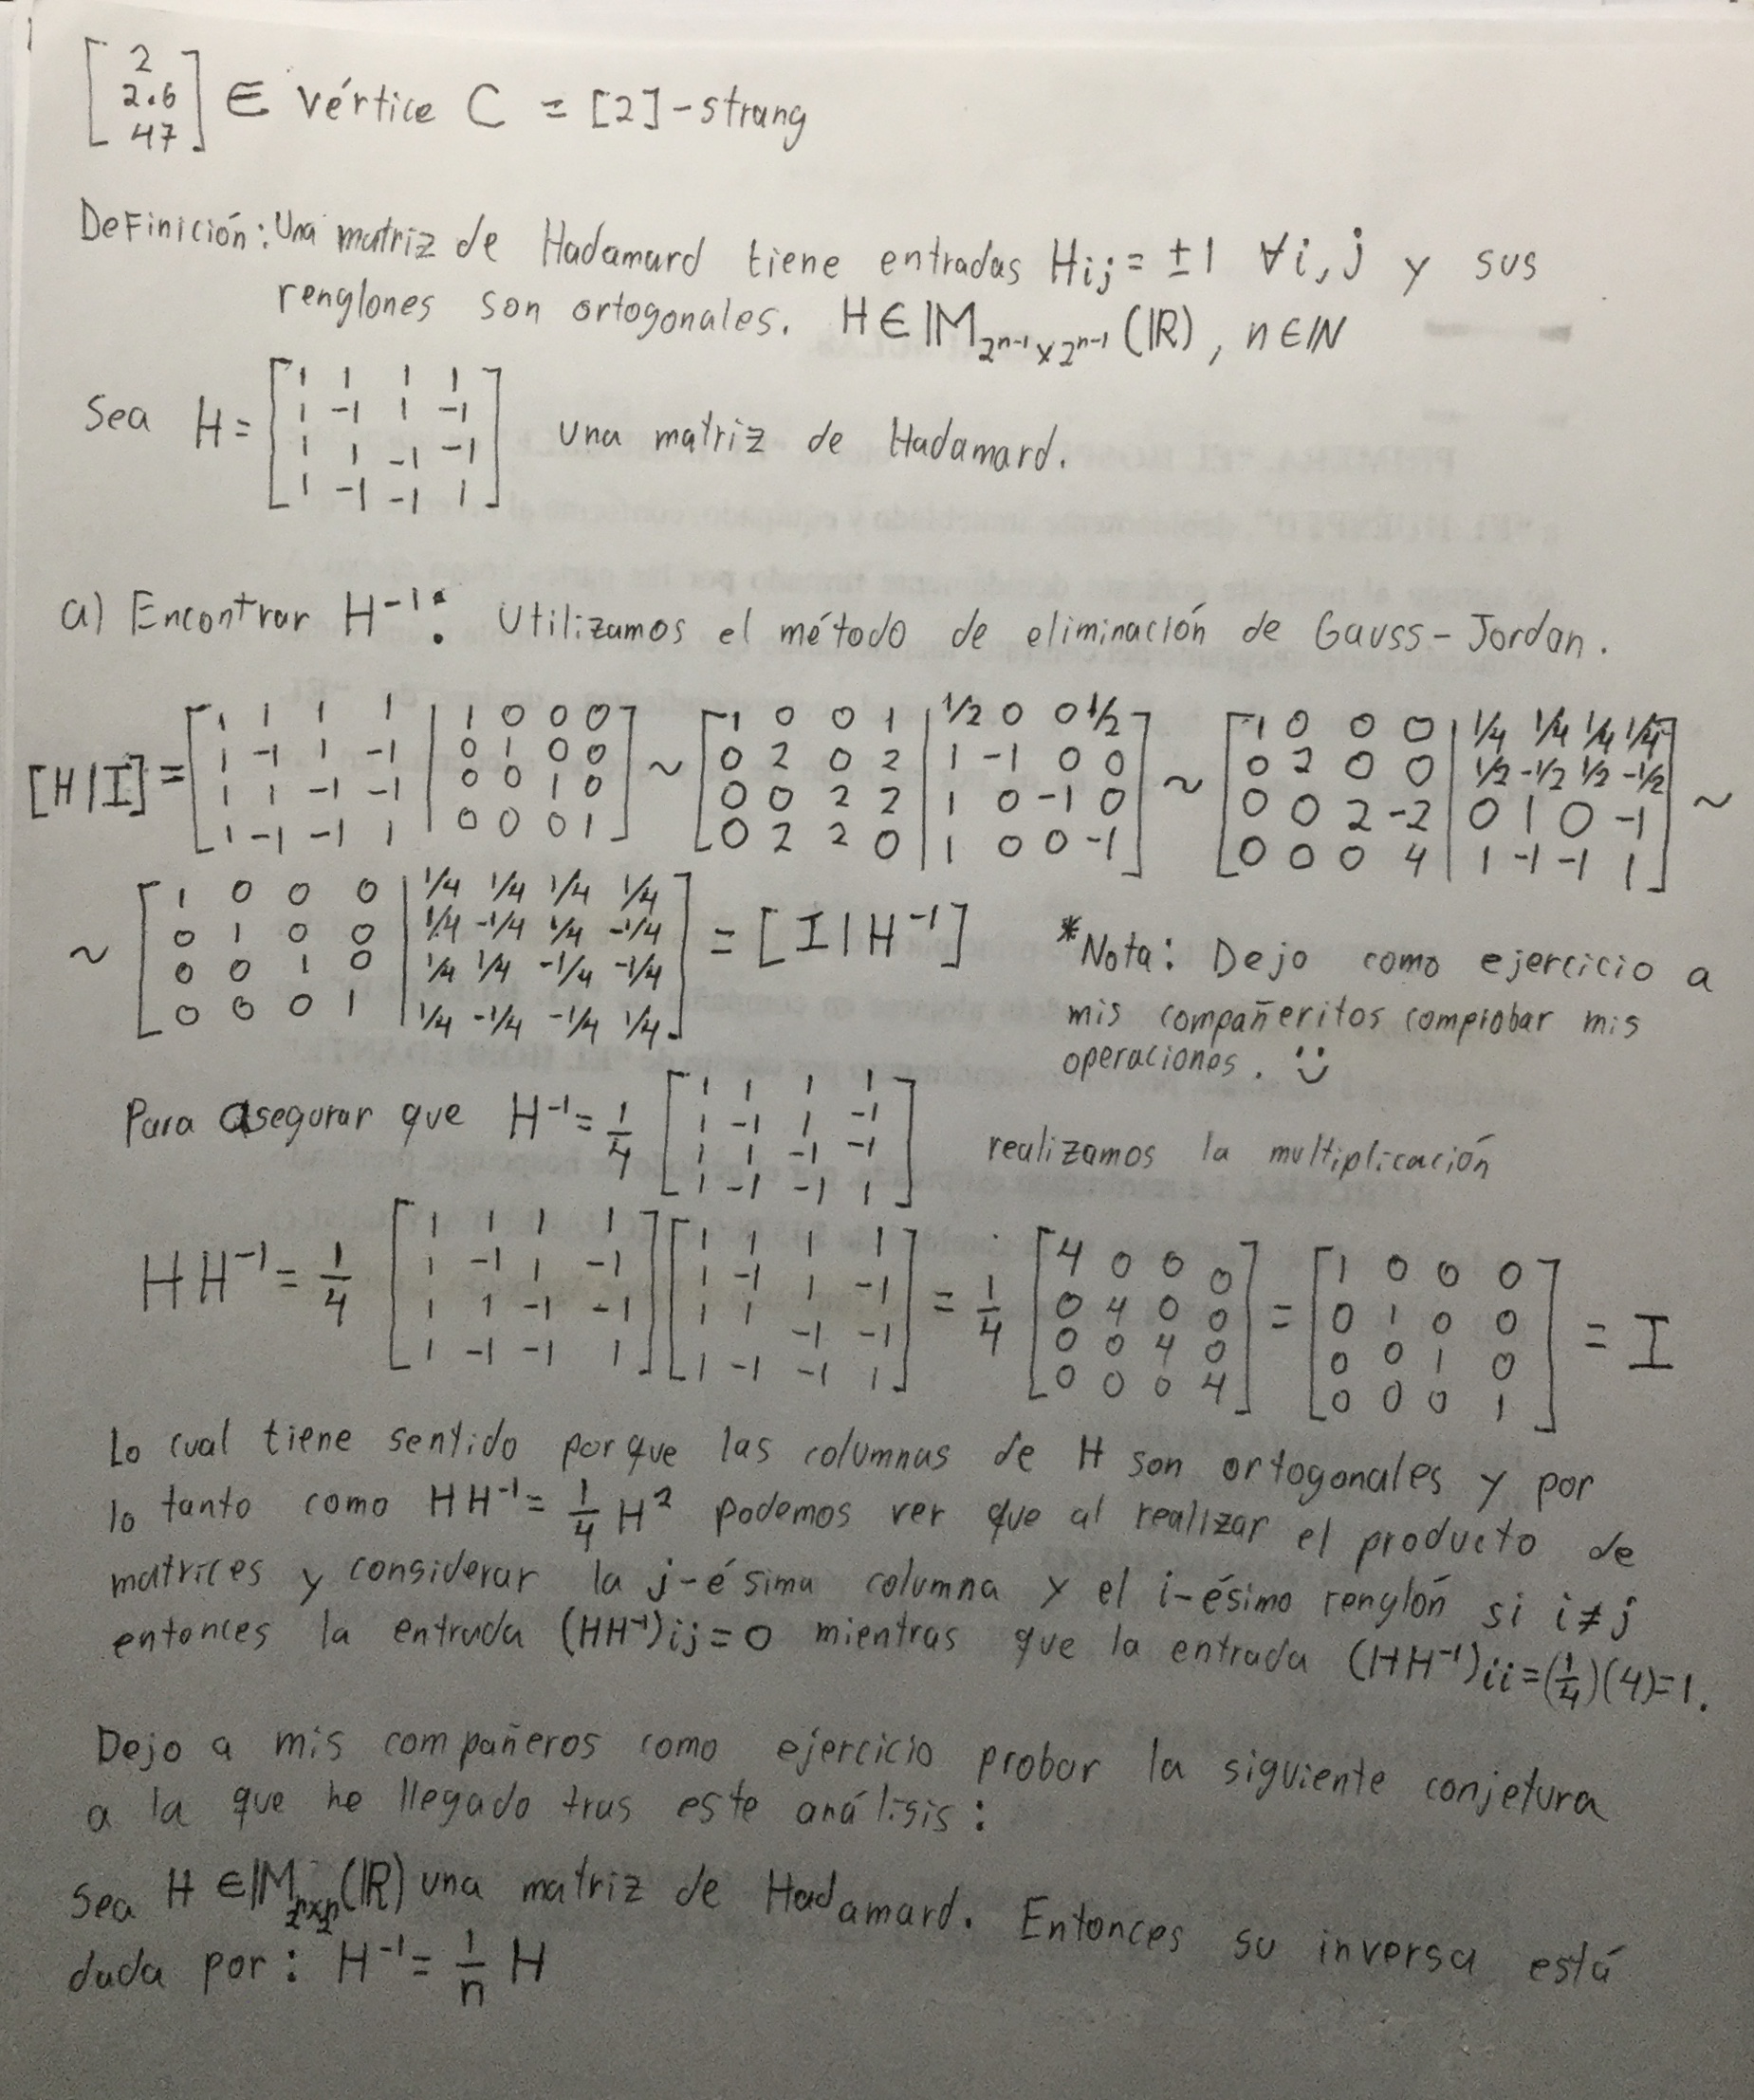 [2 2.6 47] ∈ vértice C = [2]-strang
Definición: Una matriz de Hadamard tiene entradas Hij = ±1 ∀i,j y sus
renglones son ortogonales. H ∈ M_{2^{n-1}×2^{n-1}}(ℝ), n ∈ ℕ
Sea H = [1 1 1 1; 1 -1 1 -1; 1 1 -1 -1; 1 -1 -1 1] una matriz de Hadamard.
a) Encontrar H⁻¹: Utilizamos el método de eliminación de Gauss-Jordan.
[H|I] = [1 1 1 1 | 1 0 0 0; 1 -1 1 -1 | 0 1 0 0; 1 1 -1 -1 | 0 0 1 0; 1 -1 -1 1 | 0 0 0 1] ~ [1 0 0 1 | 1/2 0 0 1/2; 0 2 0 2 | 1 -1 0 0; 0 0 2 2 | 1 0 -1 0; 0 2 2 0 | 1 0 0 -1] ~ [1 0 0 0 | 1/4 1/4 1/4 1/4; 0 2 0 0 | 1/2 -1/2 1/2 -1/2; 0 0 2 -2 | 0 1 0 -1; 0 0 0 4 | 1 -1 -1 1] ~
~ [1 0 0 0 | 1/4 1/4 1/4 1/4; 0 1 0 0 | 1/4 -1/4 1/4 -1/4; 0 0 1 0 | 1/4 1/4 -1/4 -1/4; 0 0 0 1 | 1/4 -1/4 -1/4 1/4] = [I|H⁻¹]
*Nota: Dejo como ejercicio a
mis compañeritos comprobar mis
operaciones.
Para asegurar que H⁻¹ = 1/4 [1 1 1 1; 1 -1 1 -1; 1 1 -1 -1; 1 -1 -1 1] realizamos la multiplicación
HH⁻¹ = 1/4 [1 1 1 1; 1 -1 1 -1; 1 1 -1 -1; 1 -1 -1 1] [1 1 1 1; 1 -1 1 -1; 1 1 -1 -1; 1 -1 -1 1] = 1/4 [4 0 0 0; 0 4 0 0; 0 0 4 0; 0 0 0 4] = [1 0 0 0; 0 1 0 0; 0 0 1 0; 0 0 0 1] = I
Lo cual tiene sentido porque las columnas de H son ortogonales y por
lo tanto como HH⁻¹ = 1/4 H² podemos ver que al realizar el producto de
matrices y considerar la j-ésima columna y el i-ésimo renglón si i≠j
entonces la entrada (HH⁻¹)ij = 0 mientras que la entrada (HH⁻¹)ii = (1/4)(4) = 1.
Dejo a mis compañeros como ejercicio probar la siguiente conjetura
a la que he llegado tras este análisis:
Sea H ∈ M (ℝ) una matriz de Hadamard. Entonces su inversa está
dada por: H⁻¹ = 1/n H